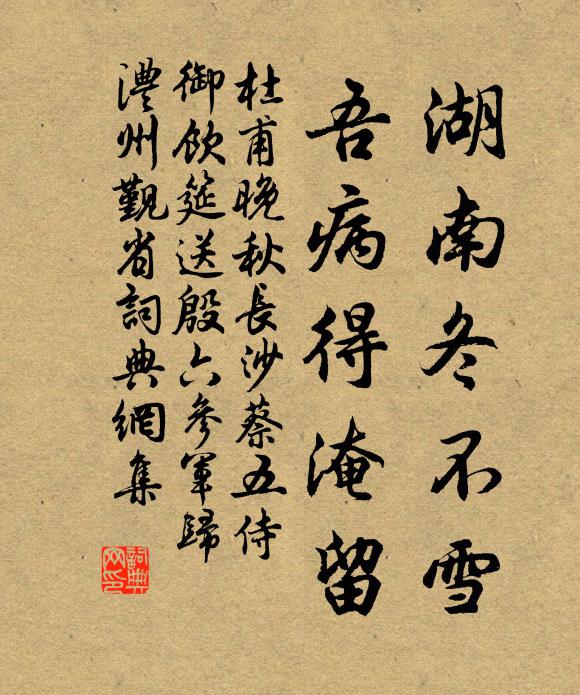 湖南冬不雪
吾病得淹留
杜甫晚秋長沙蔡五侍
御飲筵送殷六參軍歸
澧州覲省詞典網集
詞典
网印